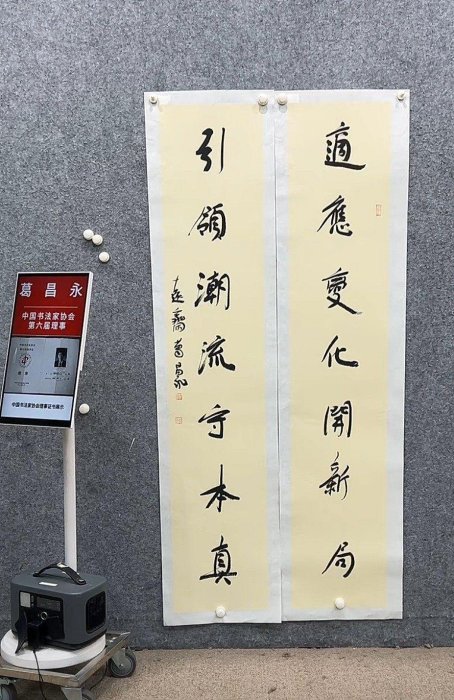 適應變化開新局
引領潮流守本真
遠齋葛昌永
葛昌永
中国书法家协会
第六届理事
中国书法家协会理事证书展示